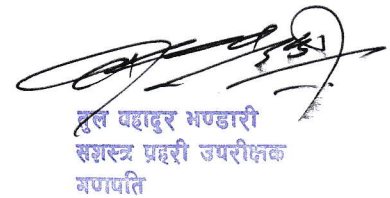 वहादुर भण्डारी
सशस्त्र प्रहरी उपरीक्षक
गणपति